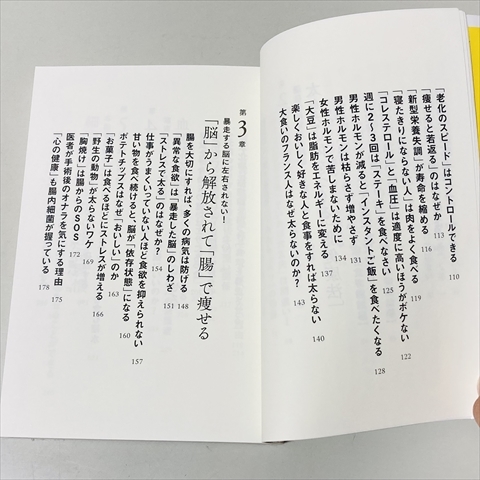 「老化のスピード」はコントロールできる 110
「痩せると若返る」のはなぜか 113
「新型栄養失調」が寿命を縮める 116
「寝たきりにならない人」は肉をよく食べる 119
「コレステロール」と「血圧」は適度に高いほうがボケない 122
週に2〜3回は「ステーキ」を食べなさい 125
男性ホルモンが減ると「インスタントご飯」を食べたくなる 128
男性ホルモンは枯らさず増やさず 131
女性ホルモンで苦しまないために 134
「大豆」は脂肪をエネルギーに変える 137
楽しくおいしく好きな人と食事をすれば太らない 140
大食いのフランス人はなぜ太らないのか? 143
第3章
暴走する脳に左右されない!
「脳」から解放されて「腸」で痩せる
腸を大切にすれば、多くの病気は防げる 148
「異常な食欲」は「暴走した脳」のしわざ 151
「ストレスで太る」のはなぜか? 154
仕事がうまくいっていない人ほど食欲を抑えられない 157
甘い物を食べ続けると、脳が「依存状態」になる 160
ポテトチップスはなぜ「おいしい」のか 163
「お菓子」は食べるほどにストレスが増える 166
「野生の動物」が太らないワケ 169
「胸焼け」は腸からのSOS 172
医者が手術後のオナラを気にする理由 175
「心の健康」も腸内細菌が握っている 178